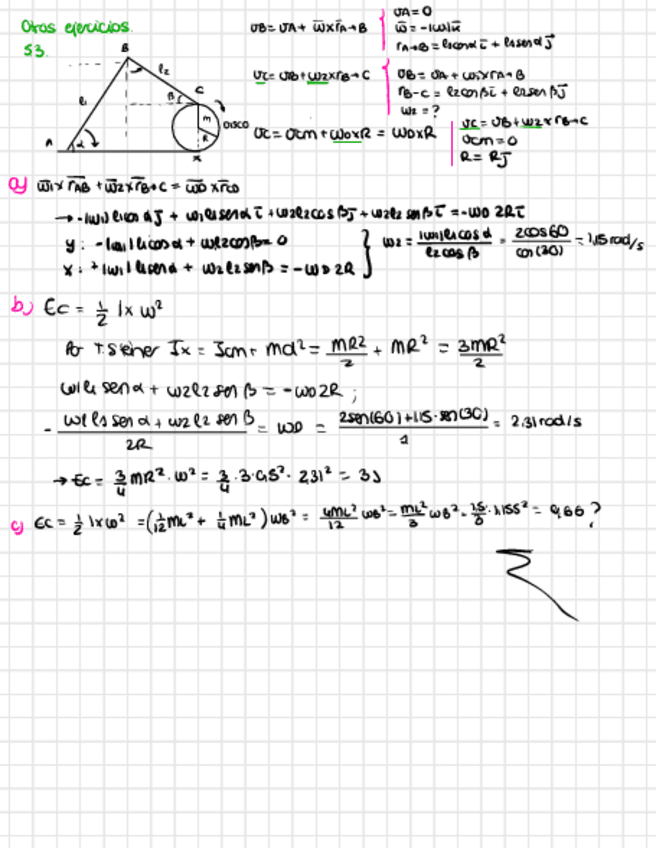 Otros ejercicios.
S3.
B
l2
l1
β
C
m
R
DISCO
A
α
x
vB = vA + ω̄ x r̄A→B
vA = 0
ω̄ = -|ω|k̄
rA→B = l1cosα ī + l1senα j̄
vC = vB + ω2 x rB→C
vB = vA + ω1 x rA→B
rB-C = l2cosβ ī + l2senβ j̄
ω2 = ?
vC = vCM + ωD x R = ωD x R
vC = vB + ω2 x rB→C
vCM = 0
R = R j̄
a) ω̄1 x r̄AB + ω̄2 x r̄B→C = ω̄D x r̄CD
→ -|ω1| l1 cosα j̄ + ω1 l1 senα ī + ω2 l2 cosβ j̄ + ω2 l2 senβ ī = -ωD 2R ī
y: -|ω1| l1 cosα + ω2 l2 cosβ = 0
x: +|ω1| l1 senα + ω2 l2 senβ = -ωD 2R
ω2 = |ω1| l1 cosα / l2 cosβ = 2cos60 / cos(30) = 1,15 rad/s
b) Ec = 1/2 Ix ω²
Por T. Steiner Ix = Icm + md² = mR²/2 + mR² = 3mR²/2
ω1 l1 senα + ω2 l2 sen β = -ωD 2R ;
- ω1 l1 sen α + ω2 l2 sen β / 2R = ωD = 2sen(60) + 1,15 · sen(30) / 1 = 2,31 rad/s
→ Ec = 3/4 mR² · ω² = 3/4 · 3 · 0,5² · 2,31² = 3J
c) Ec = 1/2 Ix ω² = (1/12 mL² + 1/4 mL²) ωB² = 4mL²/12 ωB² = mL²/3 ωB² = 1,5/3 · 1,155² = 0,66 ?